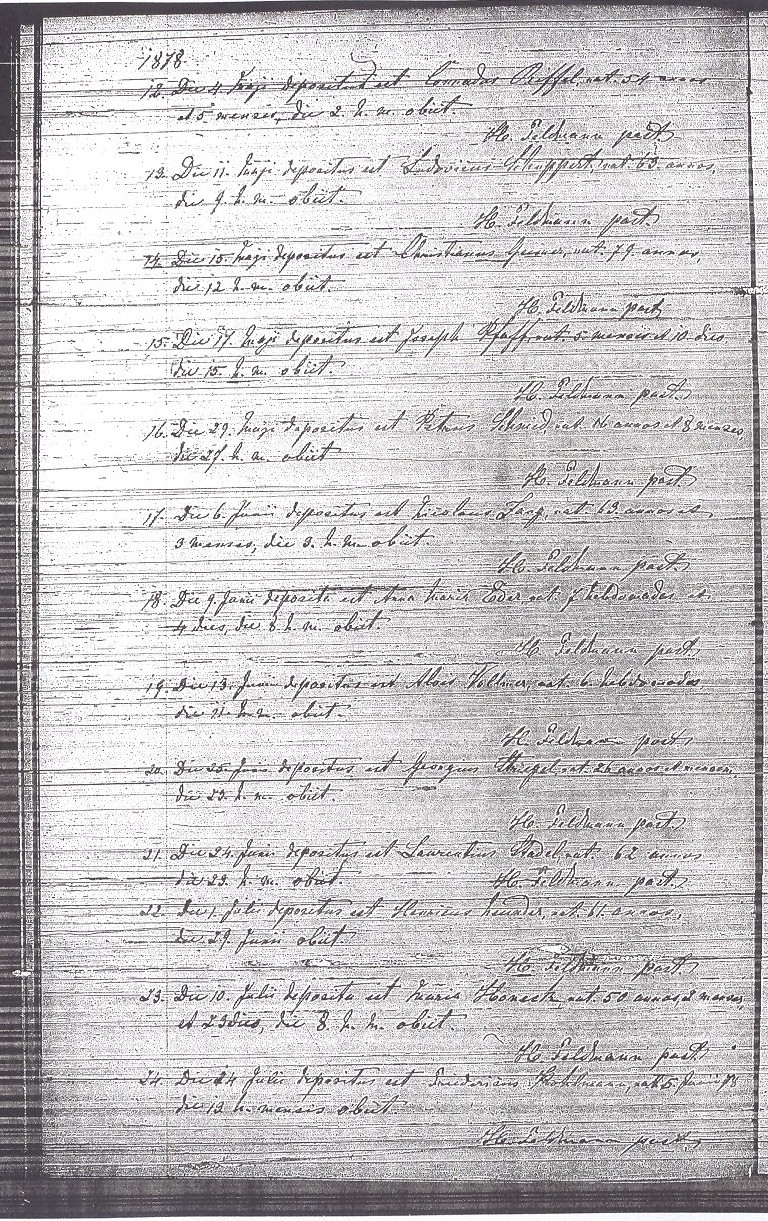 1878
12. Die 4. Maji depositus est Conradus Riffel, nat. 54 annos
et 5 menses, die 2. h. m. obiit.
H. Feldmann past.
13. Die 11. Maji depositus est Ludovicus Schuppert, nat. 63 annos,
die 9. h. m. obiit.
H. Feldmann past.
14. Die 15. Maji depositus est Christianus nat. 79 annos,
die 12 h. m. obiit.
H. Feldmann past.
15. Die 17. Maji depositus est Joseph Pfaff, nat. 5 menses et 10 dies
die 15. h. m. obiit.
H. Feldmann past.
16. Die 29. Maji depositus est Petrus Schmid, nat. annos et 8 menses,
die 27. h. m. obiit
H. Feldmann past.
17. Die 6. Junii depositus est Nicolaus nat. 63 annos et
3 menses, die 3. h. m. obiit.
H. Feldmann past.
18. Die 9. Junii deposita est Anna Maria Eder, nat. 7 hebdomadas et
4 dies, die 8 h. m. obiit.
H. Feldmann past.
19. Die 13. Junii depositus est Alois Vollmer, nat. 6 hebdomadas
die 11. h. m. obiit.
H. Feldmann past.
20. Die 25. Junii depositus est Georgius nat. 26 annos et menses,
die 23. h. m. obiit.
H. Feldmann past.
21. Die 24. Junii depositus est Laurentius Stadel, nat. 62 annos
die 23. h. m. obiit.
H. Feldmann past.
22. Die 1. Julii depositus est Henricus nat. 61 annos,
die 29. Junii obiit
H. Feldmann past.
23. Die 10. Julii deposita est Maria Honeck, nat. 50 annos 2 menses,
et 23 dies, die 8. h. m. obiit.
H. Feldmann past.
24. Die 24 Julii depositus est Fridericus nat. 5 Junii 78
die 13 h. mensis obiit.
H. Feldmann past.